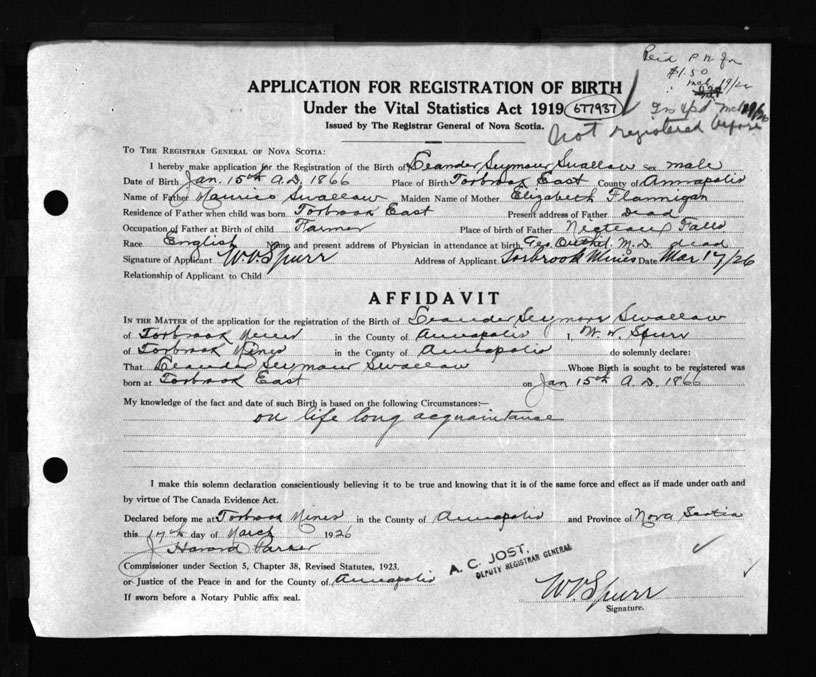 Paid P.N. for
$1.50
Mch 19/26
APPLICATION FOR REGISTRATION OF BIRTH
Under the Vital Statistics Act 1919 677937
Issued by The Registrar General of Nova Scotia.
Not registered before
TO THE REGISTRAR GENERAL OF NOVA SCOTIA:
I hereby make application for the Registration of the Birth of Leander Seymour Swallow Sex male
Date of Birth Jan. 15th A.D. 1866 Place of Birth Torbrook East County of Annapolis
Name of Father Maurice Swallow Maiden Name of Mother Elizabeth Flannigan
Residence of Father when child was born Torbrook East Present address of Father Dead
Occupation of Father at Birth of child Farmer Place of birth of Father Nictaux Falls
Race English Name and present address of Physician in attendance at birth Geo. M.D. dead
Signature of Applicant W.V. Spurr Address of Applicant Torbrook Mines Date Mar 17/26
Relationship of Applicant to Child
AFFIDAVIT
IN THE MATTER of the application for the registration of the Birth of Leander Seymour Swallow
of Torbrook Mines in the County of Annapolis I, W. V. Spurr
of Torbrook Mines in the County of Annapolis do solemnly declare:
That Leander Seymour Swallow Whose Birth is sought to be registered was
born at Torbrook East on Jan 15th A.D. 1866
My knowledge of the fact and date of such Birth is based on the following Circumstances:—
on life long acquaintance
I make this solemn declaration conscientiously believing it to be true and knowing that it is of the same force and effect as if made under oath and
by virtue of The Canada Evidence Act.
Declared before me at Torbrook Mines in the County of Annapolis and Province of Nova Scotia
this 17th day of March 1926
J. Havard Parker
Commissioner under Section 5, Chapter 38, Revised Statutes, 1923.
or Justice of the Peace in and for the County of Annapolis
If sworn before a Notary Public affix seal.
A. C. JOST,
DEPUTY REGISTRAR GENERAL
W.V. Spurr
Signature.